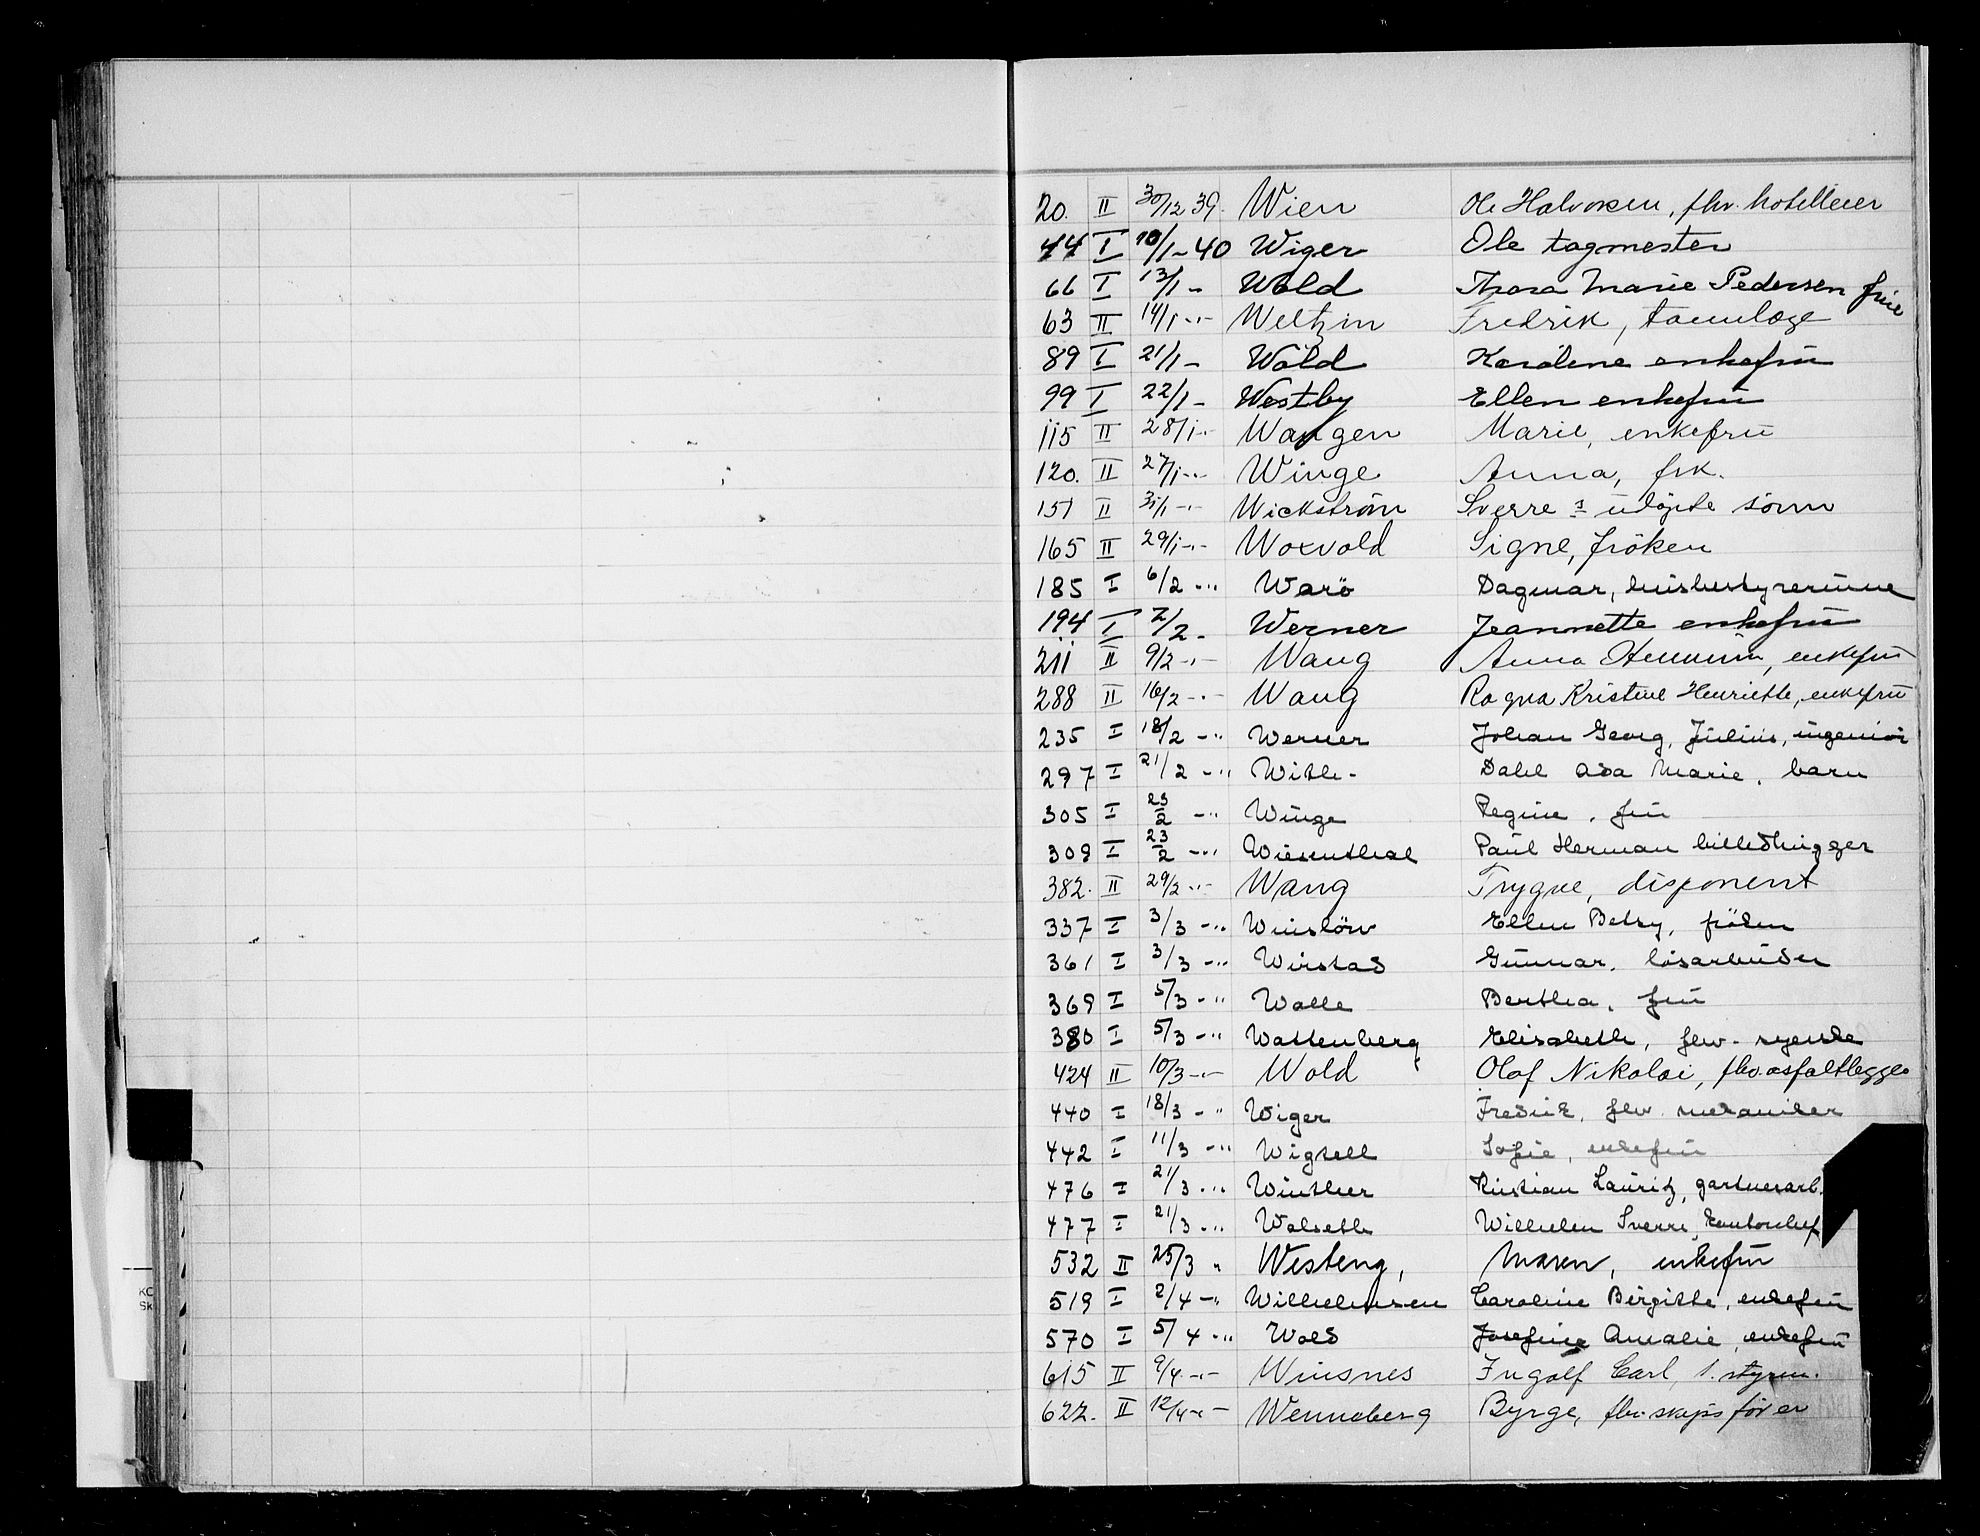 20. II 30/12 39. Wien Ole Halvorsen, fhv. hotelleier
44 I 10/1-40 Wiger Ole tagmester
66 I 13/1 - Wold Thora Marie Pedersen frue
63 II 14/1 -"- Weltzin Fredrik, tannlæge
89 I 21/1 - Wold Karoline enkefru
99 I 22/1 - Westby Ellen enkefru
115 II 28/1 -"- Wangen Marie, enkefru
120. II 27/1 -"- Winge Anna, frk.
151 II 31/1 -"- Wickstrøm Sverre s udøpte sønn
165 II 29/1 -"- Woxvold Signe, frøken
185 I 6/2 -"- Warö Dagmar, husbestyrerinne
194 I 2/2 - Werner Jeannette enkefru
211 II 9/2 -"- Wang Anna, enkefru
288 II 16/2 -"- Wang Ragna Kristine Henriette, enkefru
235 I 18/2 -" Werner Johan Georg, Julius, ingeniør
297 I 21/2 -"- With- Dahl Asa Marie, barn
305 I 23/2 -" Winge Regine, fru
309 I 23/2 -"- Wiesenthal Paul Herman billedhugger
382. II 29/2 -"- Wang Trygve, disponent
337 I 3/3 -"- Winsløw Ellen Betsy, frøken
361 I 3/3 -"- Wirstad Gunnar, løsarbeider
369 I 5/3 -" Walle Berthea, fru
380 I 5/3 -" Wattenberg Elisabeth, fhv. syerske
424 II 10/3 -"- Wold Olaf Nikolai, fhv. asfaltlegger
440 I 18/3 -" Wiger Fredrik, fhv. mekaniker
442 I 11/3 -" Wigsell Sofie, enkefru
476 I 21/3 -"- Winther Kristian Lauritz, gartnerarb.
477 I 21/3 -"- Walseth Wilhelm Sverre, kontorchef
532 II 25/3 " Westeng, Maren, enkefru
519 I 2/4 -" Wilhelmsen Caroline Birgitte, enkefru
570 I 5/4 -" Wold Josefine Amalie, enkefru
615 II 9/4 -"- Winsnes Ingolf Carl, 1. styrm.
622. II 12/4 -"- Wenneberg Byrge, fhv. skipsfører